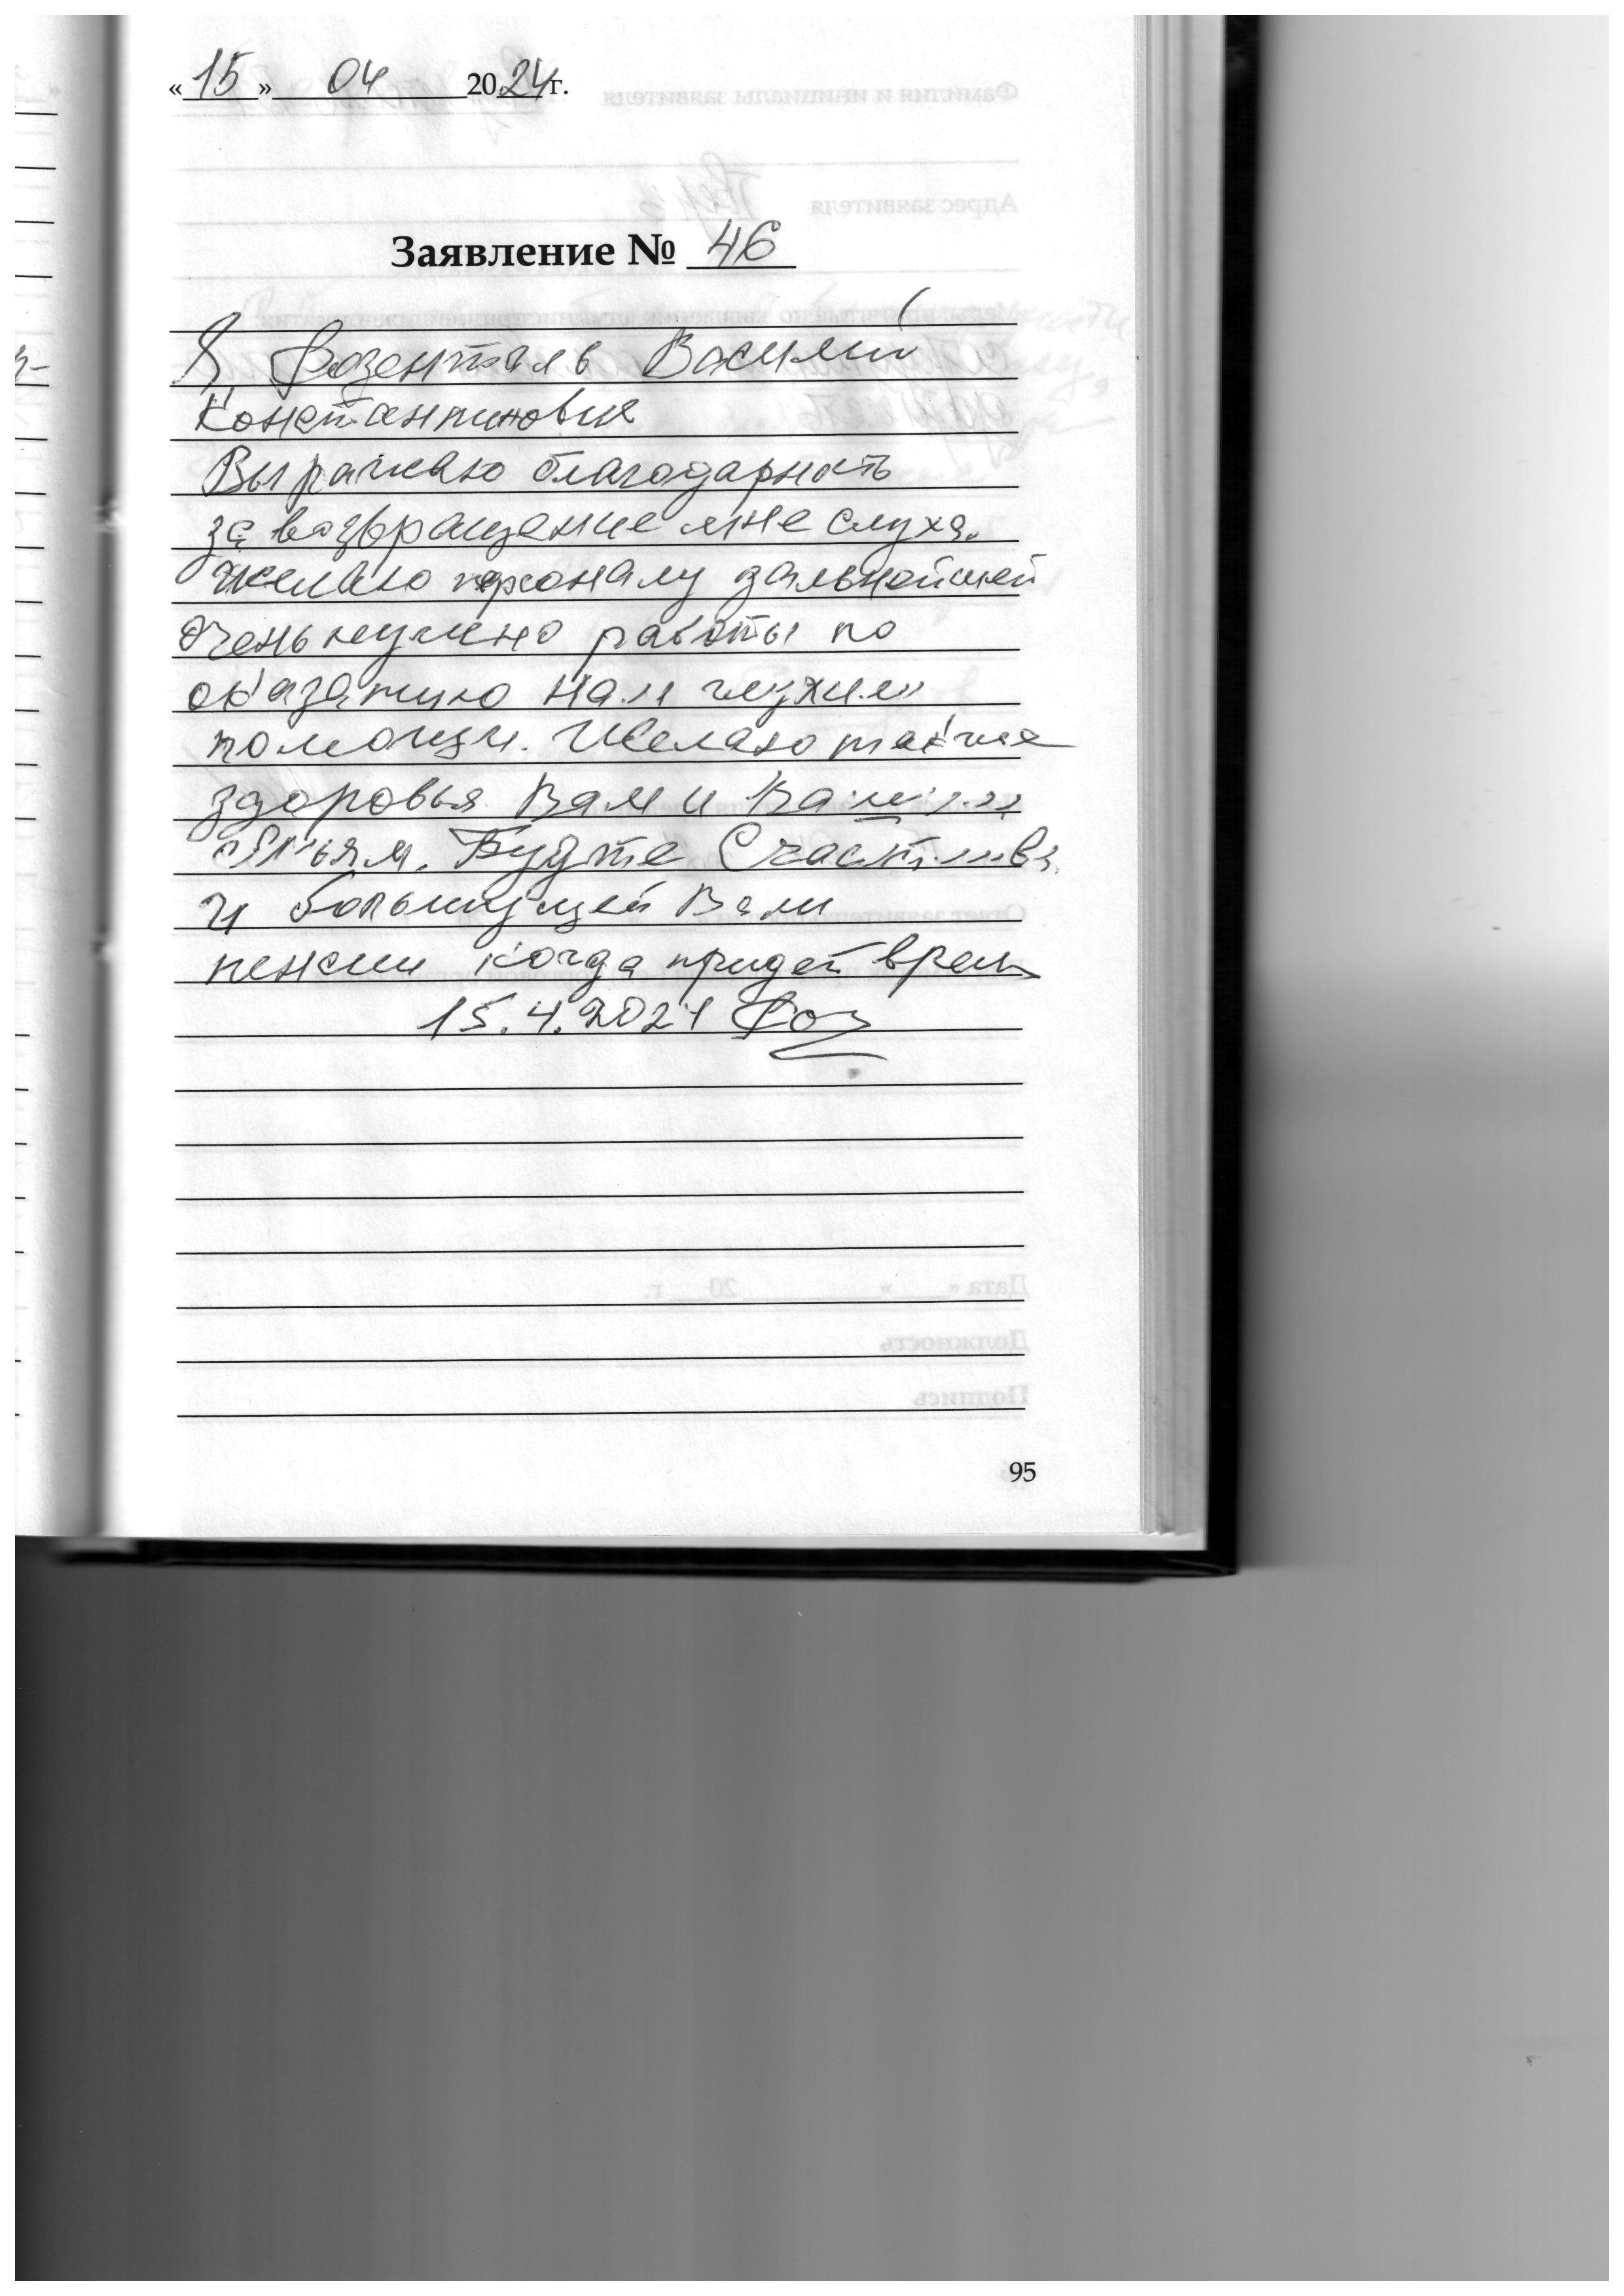 «15» 04 2024г.
Заявление № 46
Я, Розенталь Василий
Константинович
Выражаю благодарность
за возвращение мне слуха.
Желаю персоналу дальнейшей
очень нужно работы по
оказанию нам глухим
помощи. Желаю также
здоровья Вам и Вашим
семьям. Будте Счастливы
и большущей Вам
пенсии когда придет время
15.4.2024 Роз
95